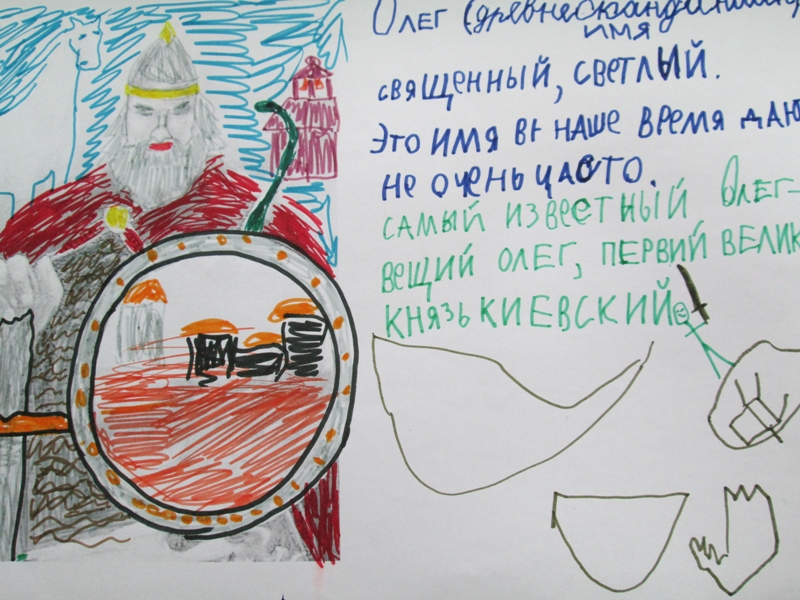 Олег (древнескандинав
имя
священный, светлый.
Это имя в наше время даю
не очень часто.
самый известный Олег-
вещий олег, первий велик
князь киевский